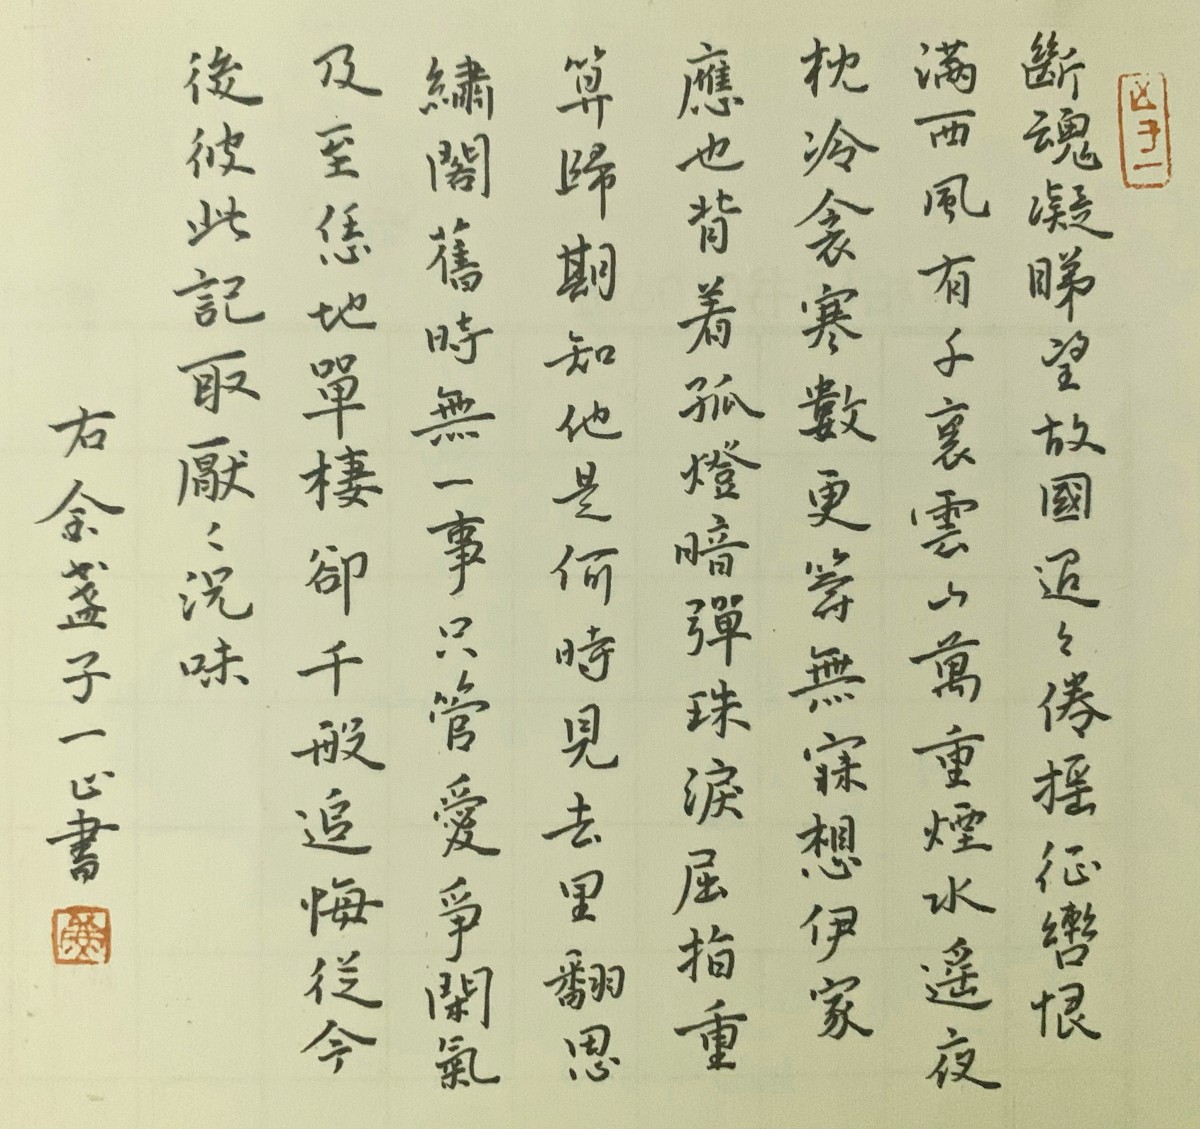 斷魂凝睇望故國迢〻倦摇征轡恨
滿西風有千裏雲山萬重煙水遥夜
枕冷衾寒數更籌無寐想伊家
應也背着孤燈暗彈珠淚屈指重
算歸期知他是何時見去里翻思
繡閣舊時無一事只管愛爭閑氣
及至恁地單棲卻千般追悔從今
後彼此記取厭〻況味
右金盞子一正書